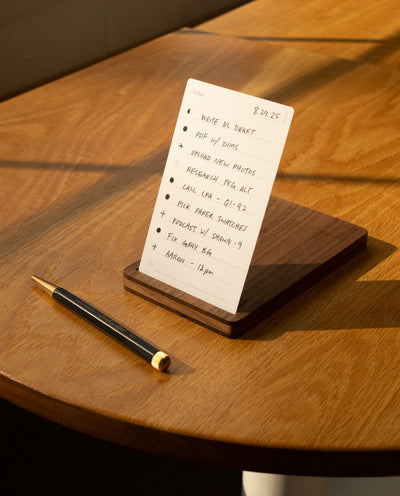 TODAY
8.29.25
WRITE NL DRAFT
PDF W/ DIMS
UPLOAD NEW PHOTOS
RESEARCH PKG ALT
CALL CPA - Q1-92
PICK PAPER SWATCHES
PODCAST W/ SHAWN - 9
FIX GRAY BG
AARON - 12pm